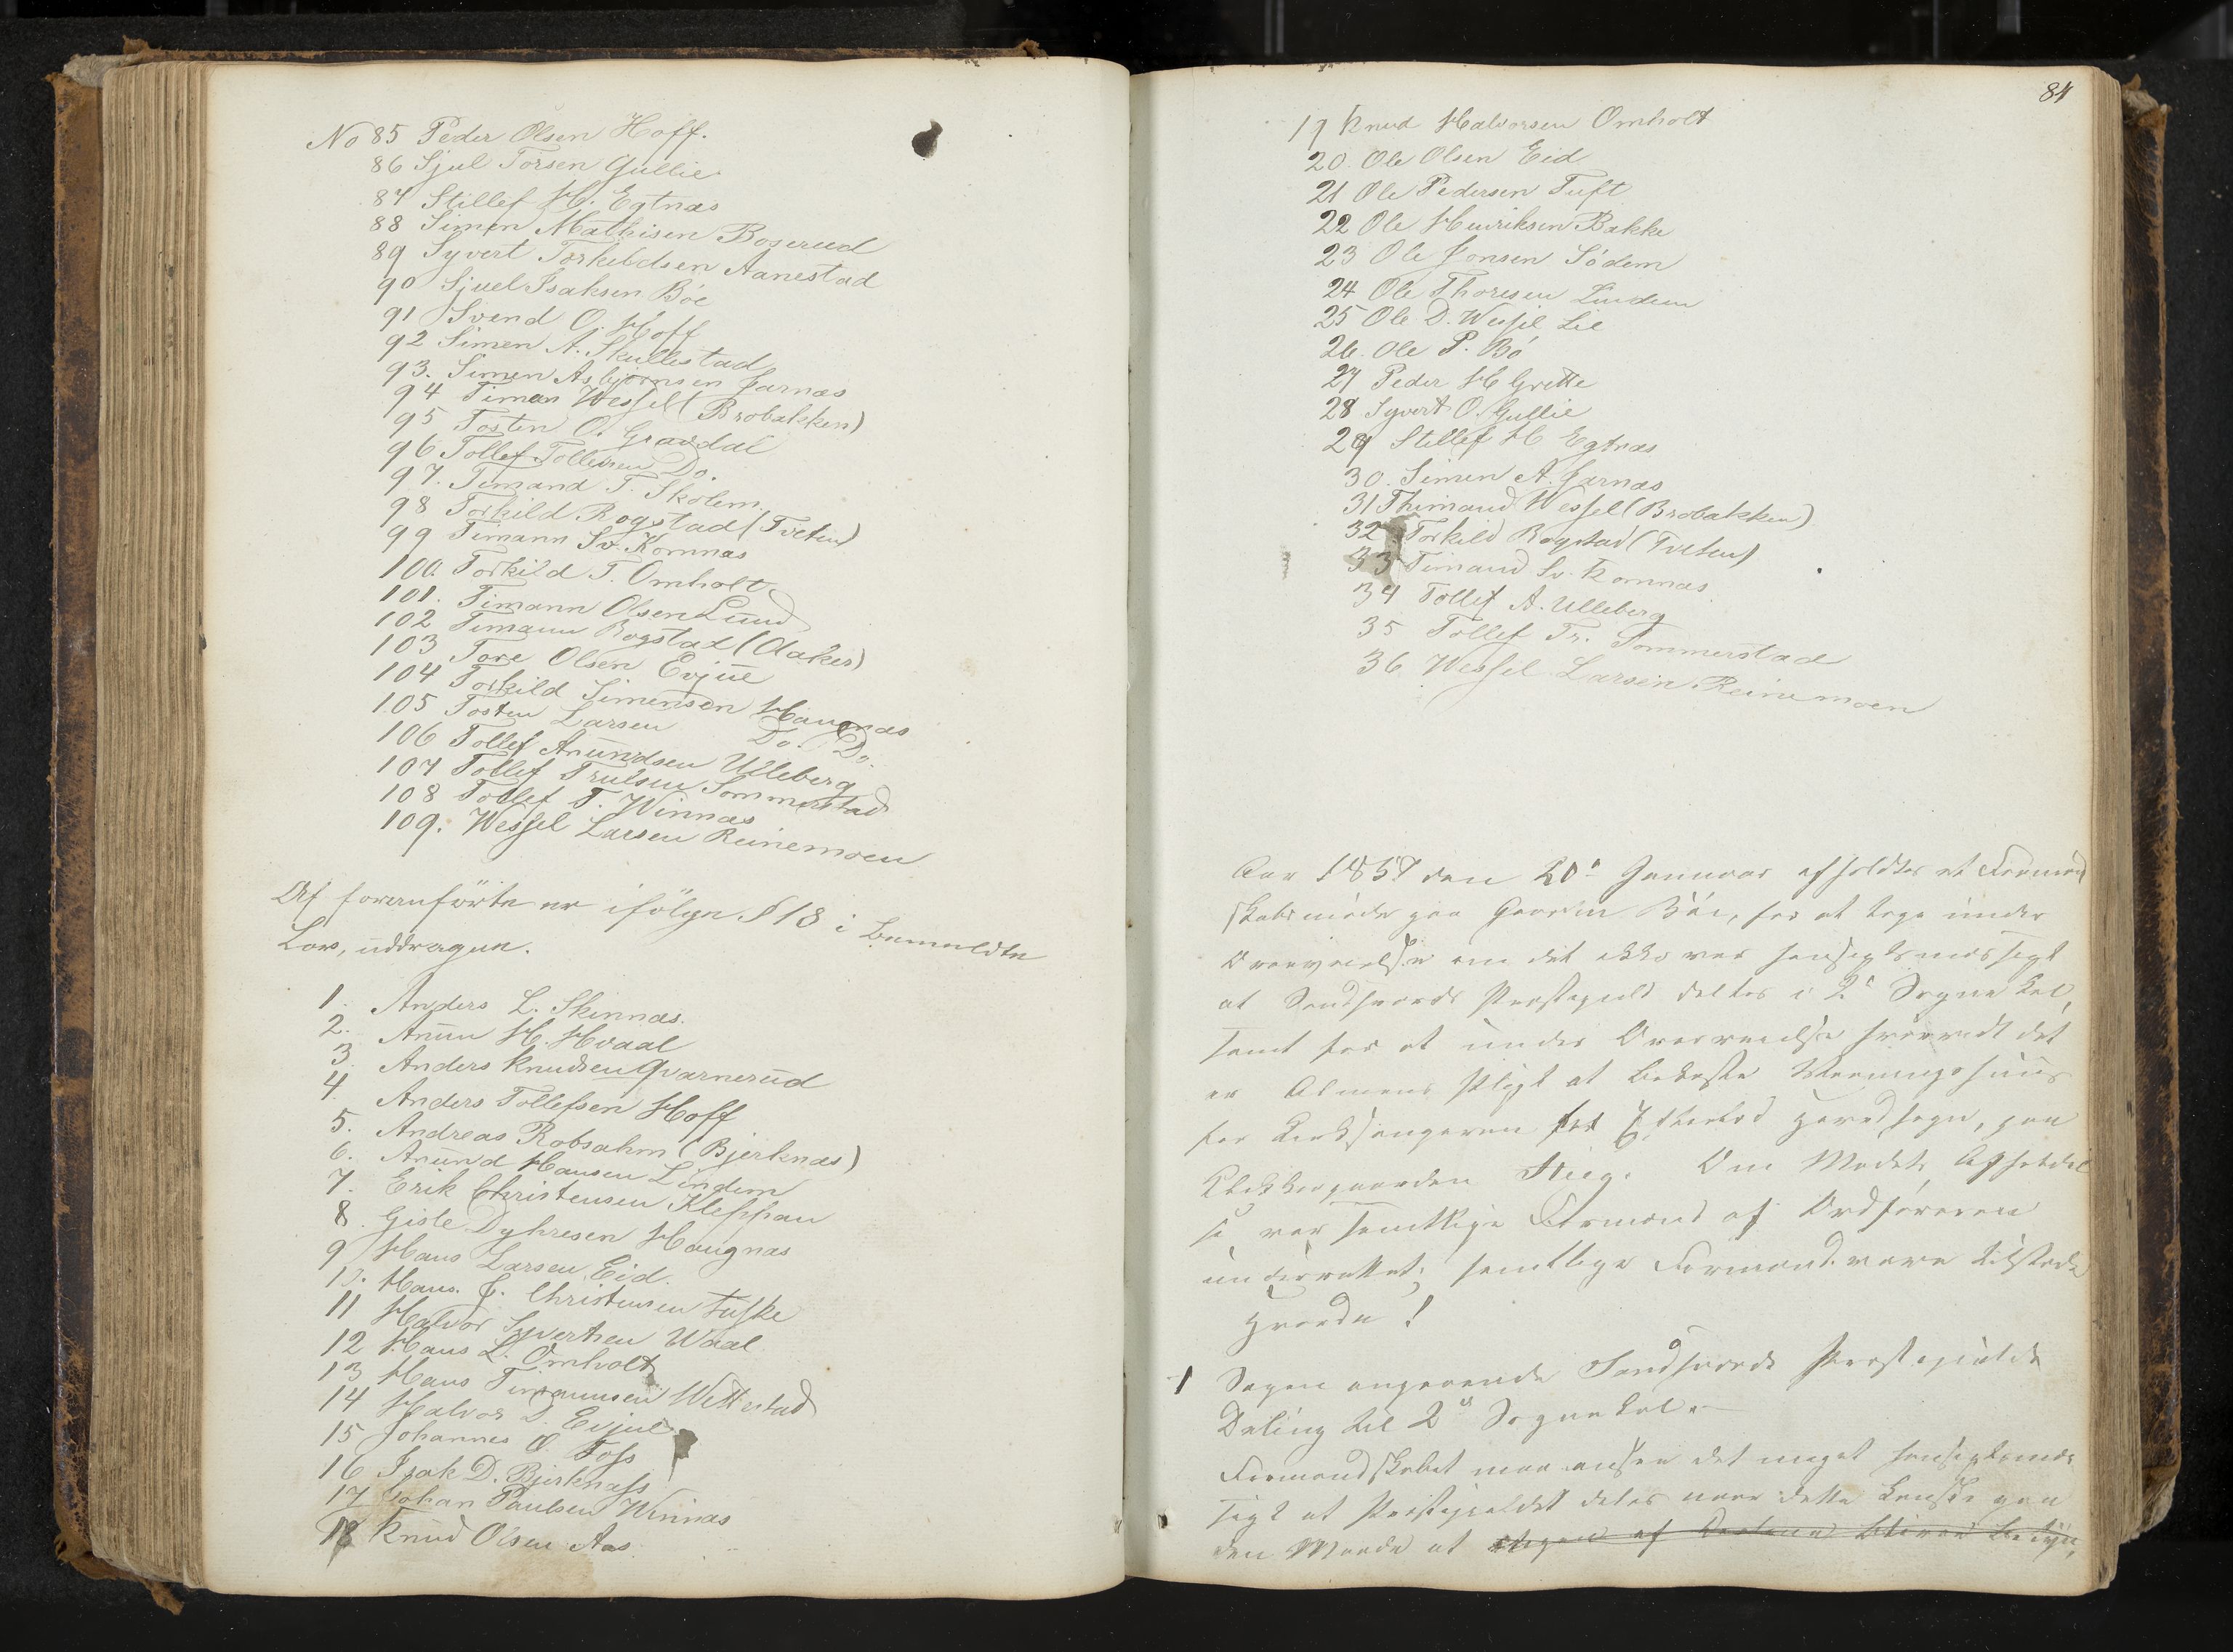 No 85 Peder Olsen Hoff.
86 Sjul Torsen Gullie
87 Stillef H. Egtnæs
88 Simen Mathisen Bogerud
89 Syvert Torkildsen Aanestad
90 Sjuel Isaksen Böe
91 Svend O. Hoff
92 Simen A. Skullestad
93. Simen Asbjörnsen Jarnæs
94 Timan Wessel (Brobakken)
95 Tosten O. Gravdal
96 Tollef Tollefsen Do
97. Timand T. Skolem
98 Torkild Rogstad (Tveten)
99 Timann Sv. Komnæs
100. Torkild T. Omholt
101. Timann Olsen Lund
102 Timann Rogstad (Aaker)
103 Tore Olsen Evjue
104 Torkild Simensen Haugnæs
105 Tosten Larsen Do. Do.
106 Tollef Anundsen Ulleberg
107 Tollef Trulsen Sommerstad
108 Tollef T. Winnæs
109. Wessel Larsen Reinemoen
Af foranførte er ifølge § 18 i bemeldte
Lov, uddragen.
1. Anders L. Skinnæs.
2. Anun H. Hvaal
3. Anders Knudsen Qvarnerud
4. Anders Tollefsen Hoff
5. Andreas Robsahm (Bjerknæs)
6. Anund Hansen Lindem
7. Erik Christensen Kleppan
8. Gisle Dyhresen Haugnæs
9 Hans Larsen Eid.
10. Hans J. Christensen Tufte
11 Halvor Syvertsen Waal
12 Hans L. Omholt
13 Hans Timannsen Wettestad
14 Halvor D. Evjue
15 Johannes O. Foss
16 Isak D. Bjerknæss
17 Johan Paulsen Winnæs
18 Knud Olsen Aas
84
19 Knud Halvorsen Omholt
20. Ole Olsen Eid
21 Ole Pedersen Tuft
22 Ole Henriksen Bakke
23 Ole Jonsen Södem
24 Ole Thoresen Lindem
25 Ole D. Wessel Lie
26. Ole P. Bö
27 Peder H Grette
28 Syvert O. Gullie
29 Stillef H Egtnæs
30. Simen A. Jarnæs
31 Thimand Wessel (Brobakken)
32 Torkild Rogstad (Tveten)
33 Timand Sv. Komnæs
34 Tollef A. Ulleberg
35 Tollef Tr. Sommerstad
36 Wessel Larsen Reinemoen
Aar 1857 den 20de Januar afholdtes et Formand
skabsmøde paa Gaarden Böe, for at tage under
Overveielse om det ikke var hensigtsmæssigt
at Sandsværds Præstegield deltes i 2de Sognekal,
samt for at under Overveielse hvorvidt det
er Almuens Pligt at bekoste Vaaningshuus
for Kirkesangeren for Efteløt Hovedsogn, paa
Klokkergaarden Stieg. Om Mødets Afholdel
se var samtlige Formænd af Ordføreren
underrettet; samtlige Formænd vare tilstede
Hvorda!
1 Sagen angaaende Sandsværds Præstegields
Deling til 2de Sognekal.
Formandskabet maa ansee det meget hensigtsmæs
sigt at Præstegieldet deles naar dette kan skee paa
den Maade at